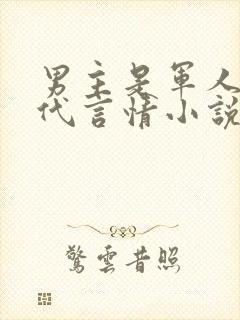 男主是軍人
代言情小說
驚雲昔照